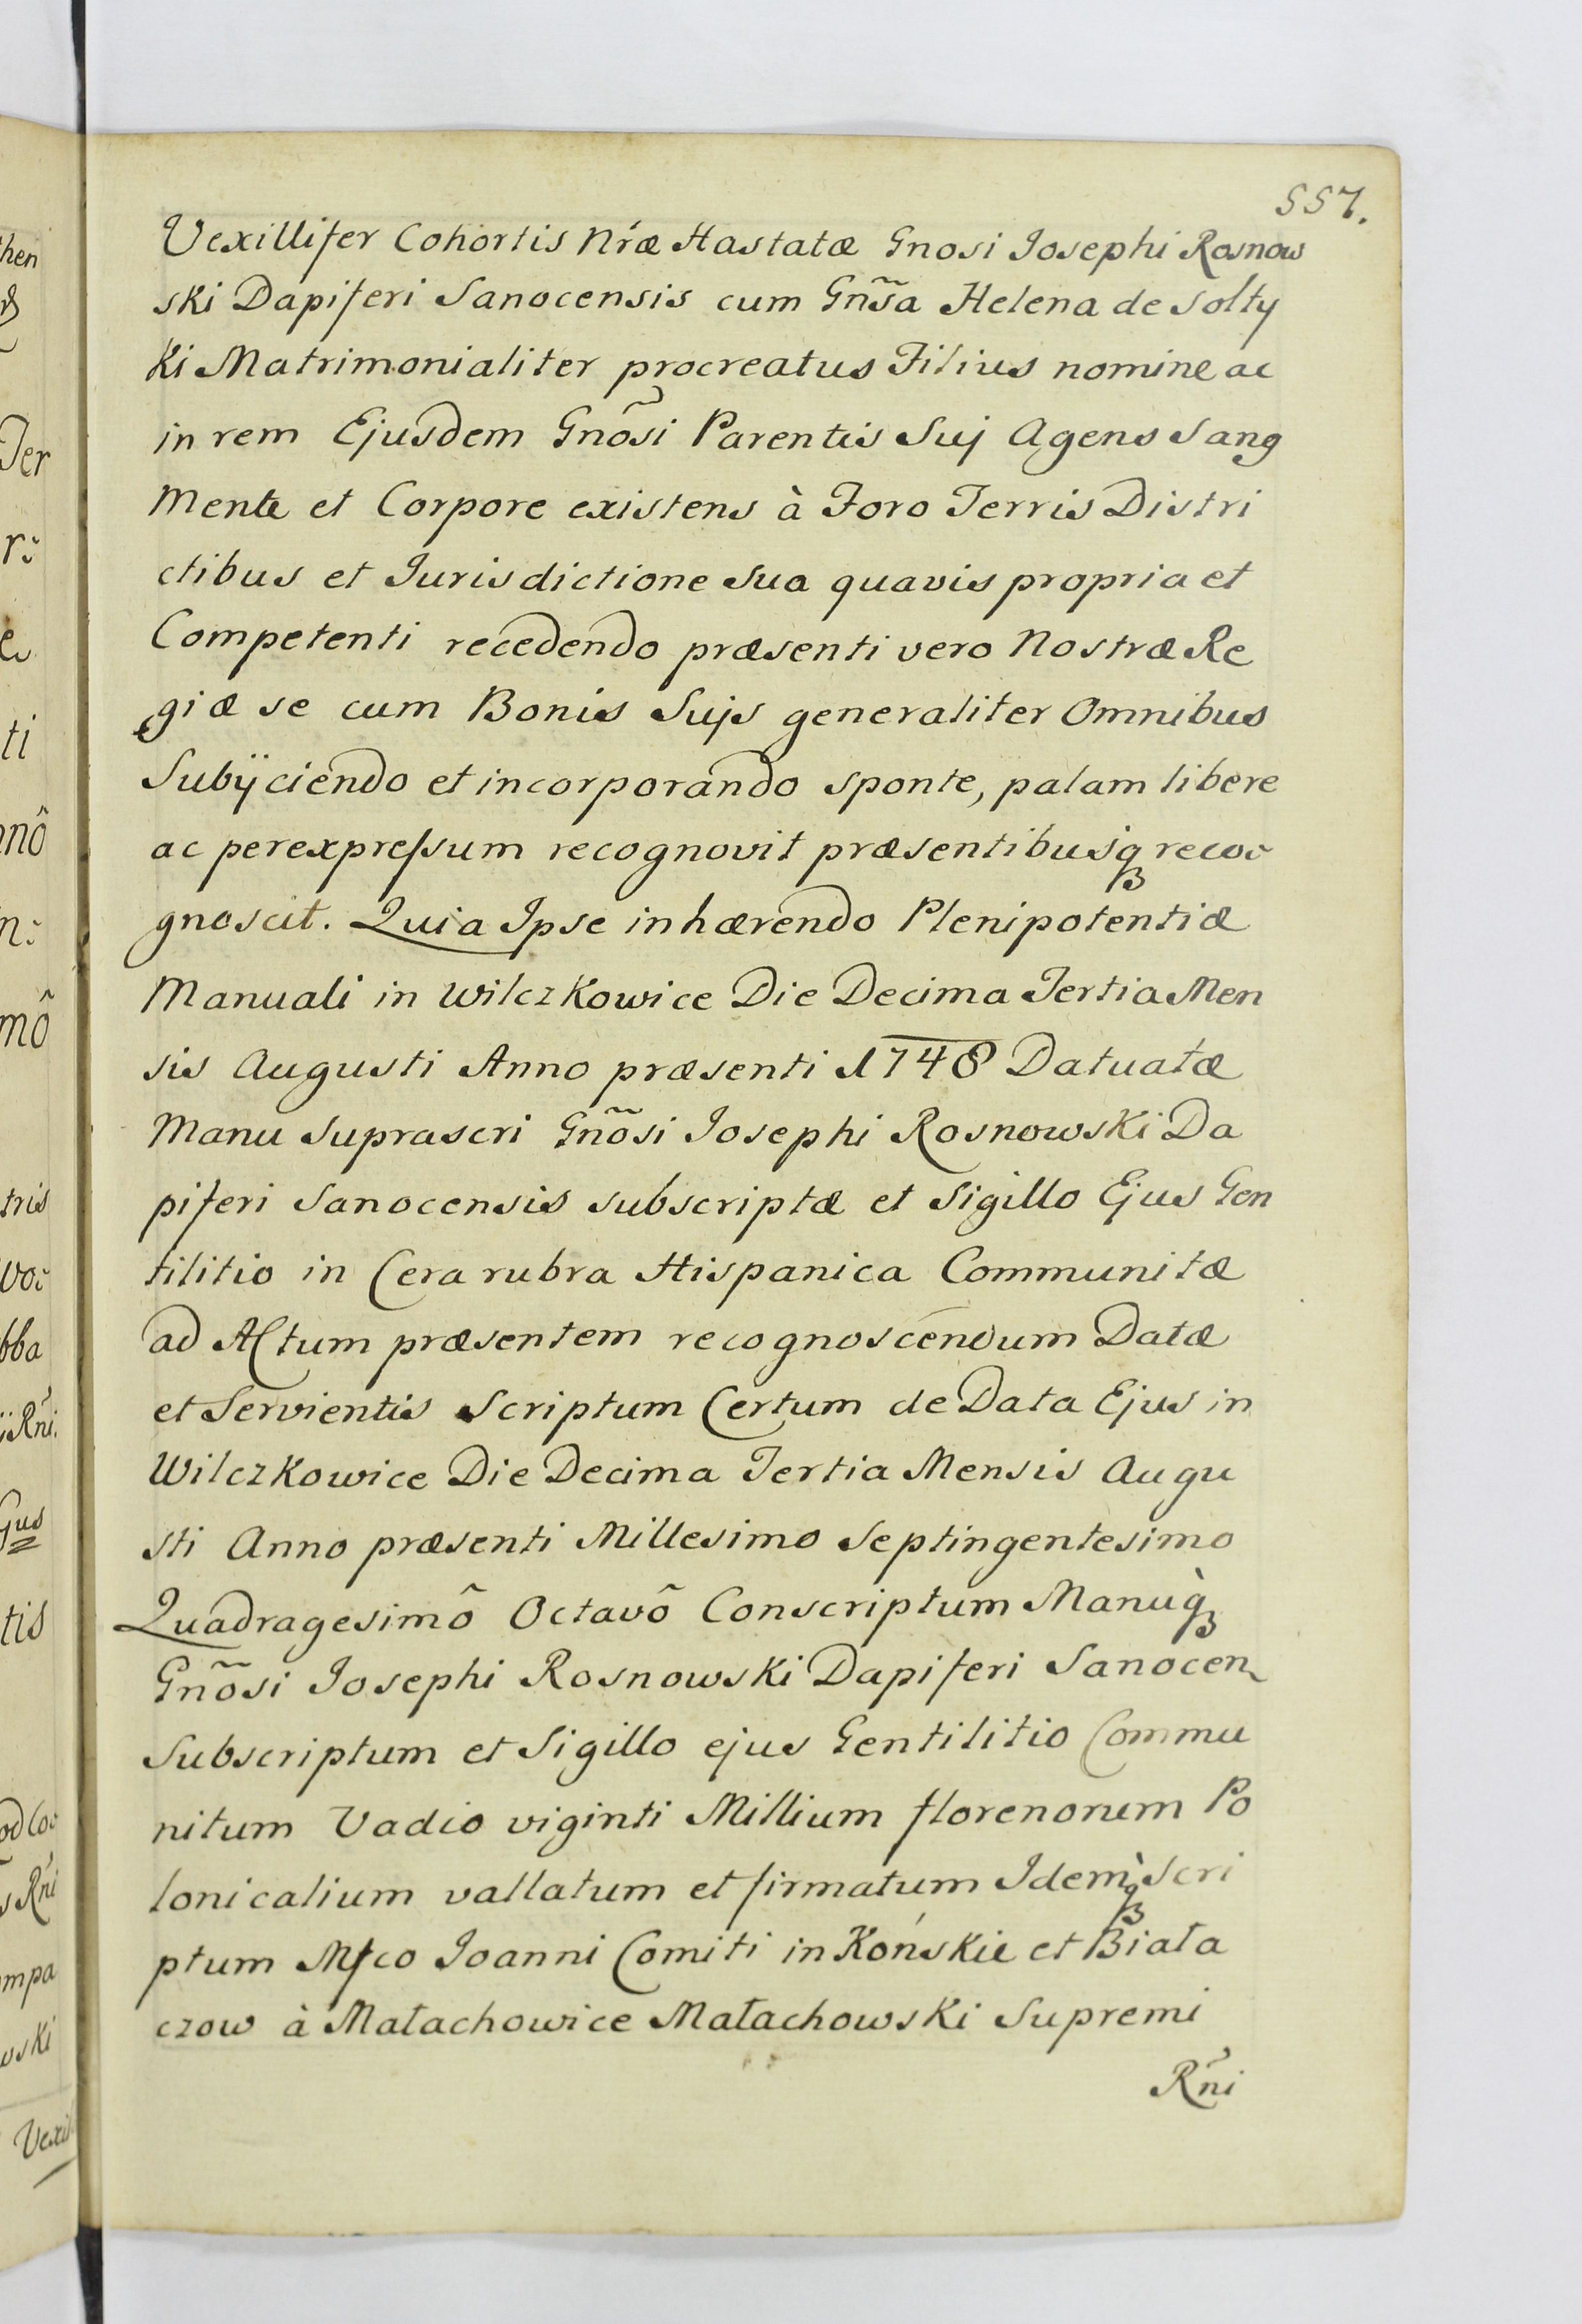 557.
Vexillifer Cohortis Nræ Hastatæ Gnosi Josephi Rosnow
ski Dapiferi Sanocensis cum Gñsa Helena de Solty
ki Matrimonialiter procreatus Filius nomine ac
in rem Ejusdem Gnõsi Parentis Suj Agens Sang
Mente et Corpore existens à Foro Terris Distri
ctibus et Jurisdictione Sua quavis propria et
Competenti recedendo præsenti vero Nostræ Re
giæ se cum Bonis Sujs generaliter Omnibus
Subÿciendo et incorporando sponte, palam libere
ac perexpreſsum recognovit præsentibusq́ʒ reco
gnoscit. Quia Ipse inhærendo Plenipotentiæ
Manuali in Wilczkowice Die Decima Tertia Men
sis Augusti Anno præsenti 1748 Datuatæ
Manu Suprascri Gñõsi Josephi Rosnowski Da
piferi Sanocensis subscriptæ et Sigillo Ejus Gen
tilitio in Cera rubra Hispanica Communitæ
ad Actum præsentem recognoscendum Datæ
et Servientis Scriptum Certum de Data Ejus in
Wilczkowice Die Decima Tertia Mensis Augu
sti Anno præsenti Millesimo Septingentesimo
Quadragesimõ Octavõ Conscriptum Manuq̀ʒ
Gñõsi Josephi Rosnowski Dapiferi Sanocen
Subscriptum et Sigillo ejus Gentilitio Commu
nitum Vadio viginti Millium florenorum Po
lonicalium vallatum et firmatum Idemq̀ʒ Scri
ptum Mfco Joanni Comiti in Końskie et Biała
czow à Małachowice Małachowski Supremi
Rńi